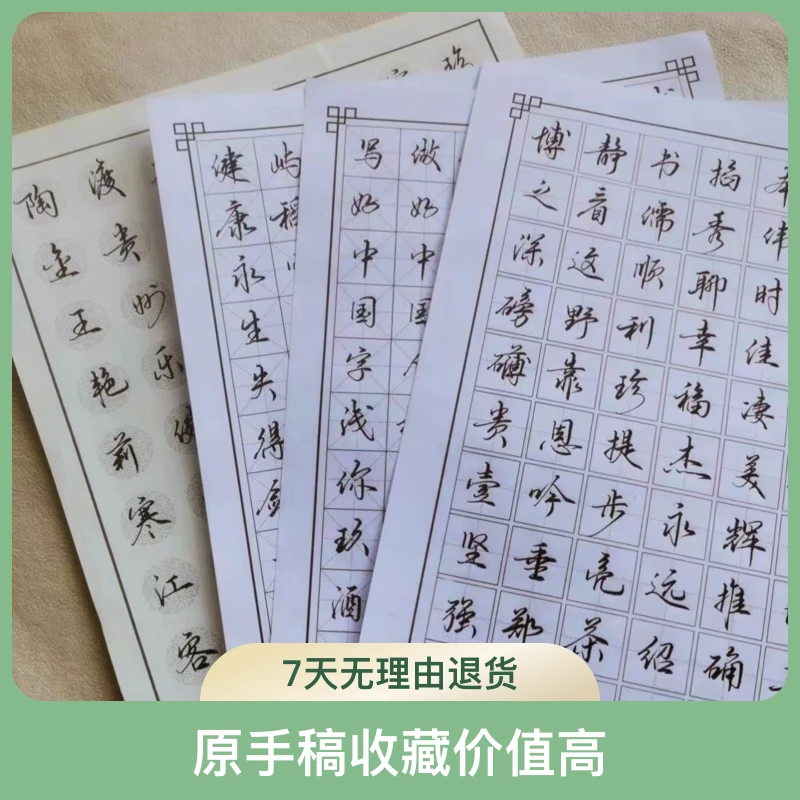 陶
渡
金
贵
王
妙
艳
乐
莉
寒
江
客
健康永生失得
屿稻
写好中国字浅你玖酒
做好中国
博之深磅礴贵壹坚强
静看这野靠恩吟垂郑
书儒顺利珍提步亮茶
掐秀聊幸福杰永远绍
伴时佳凄美辉推确
7天无理由退货
原手稿收藏价值高